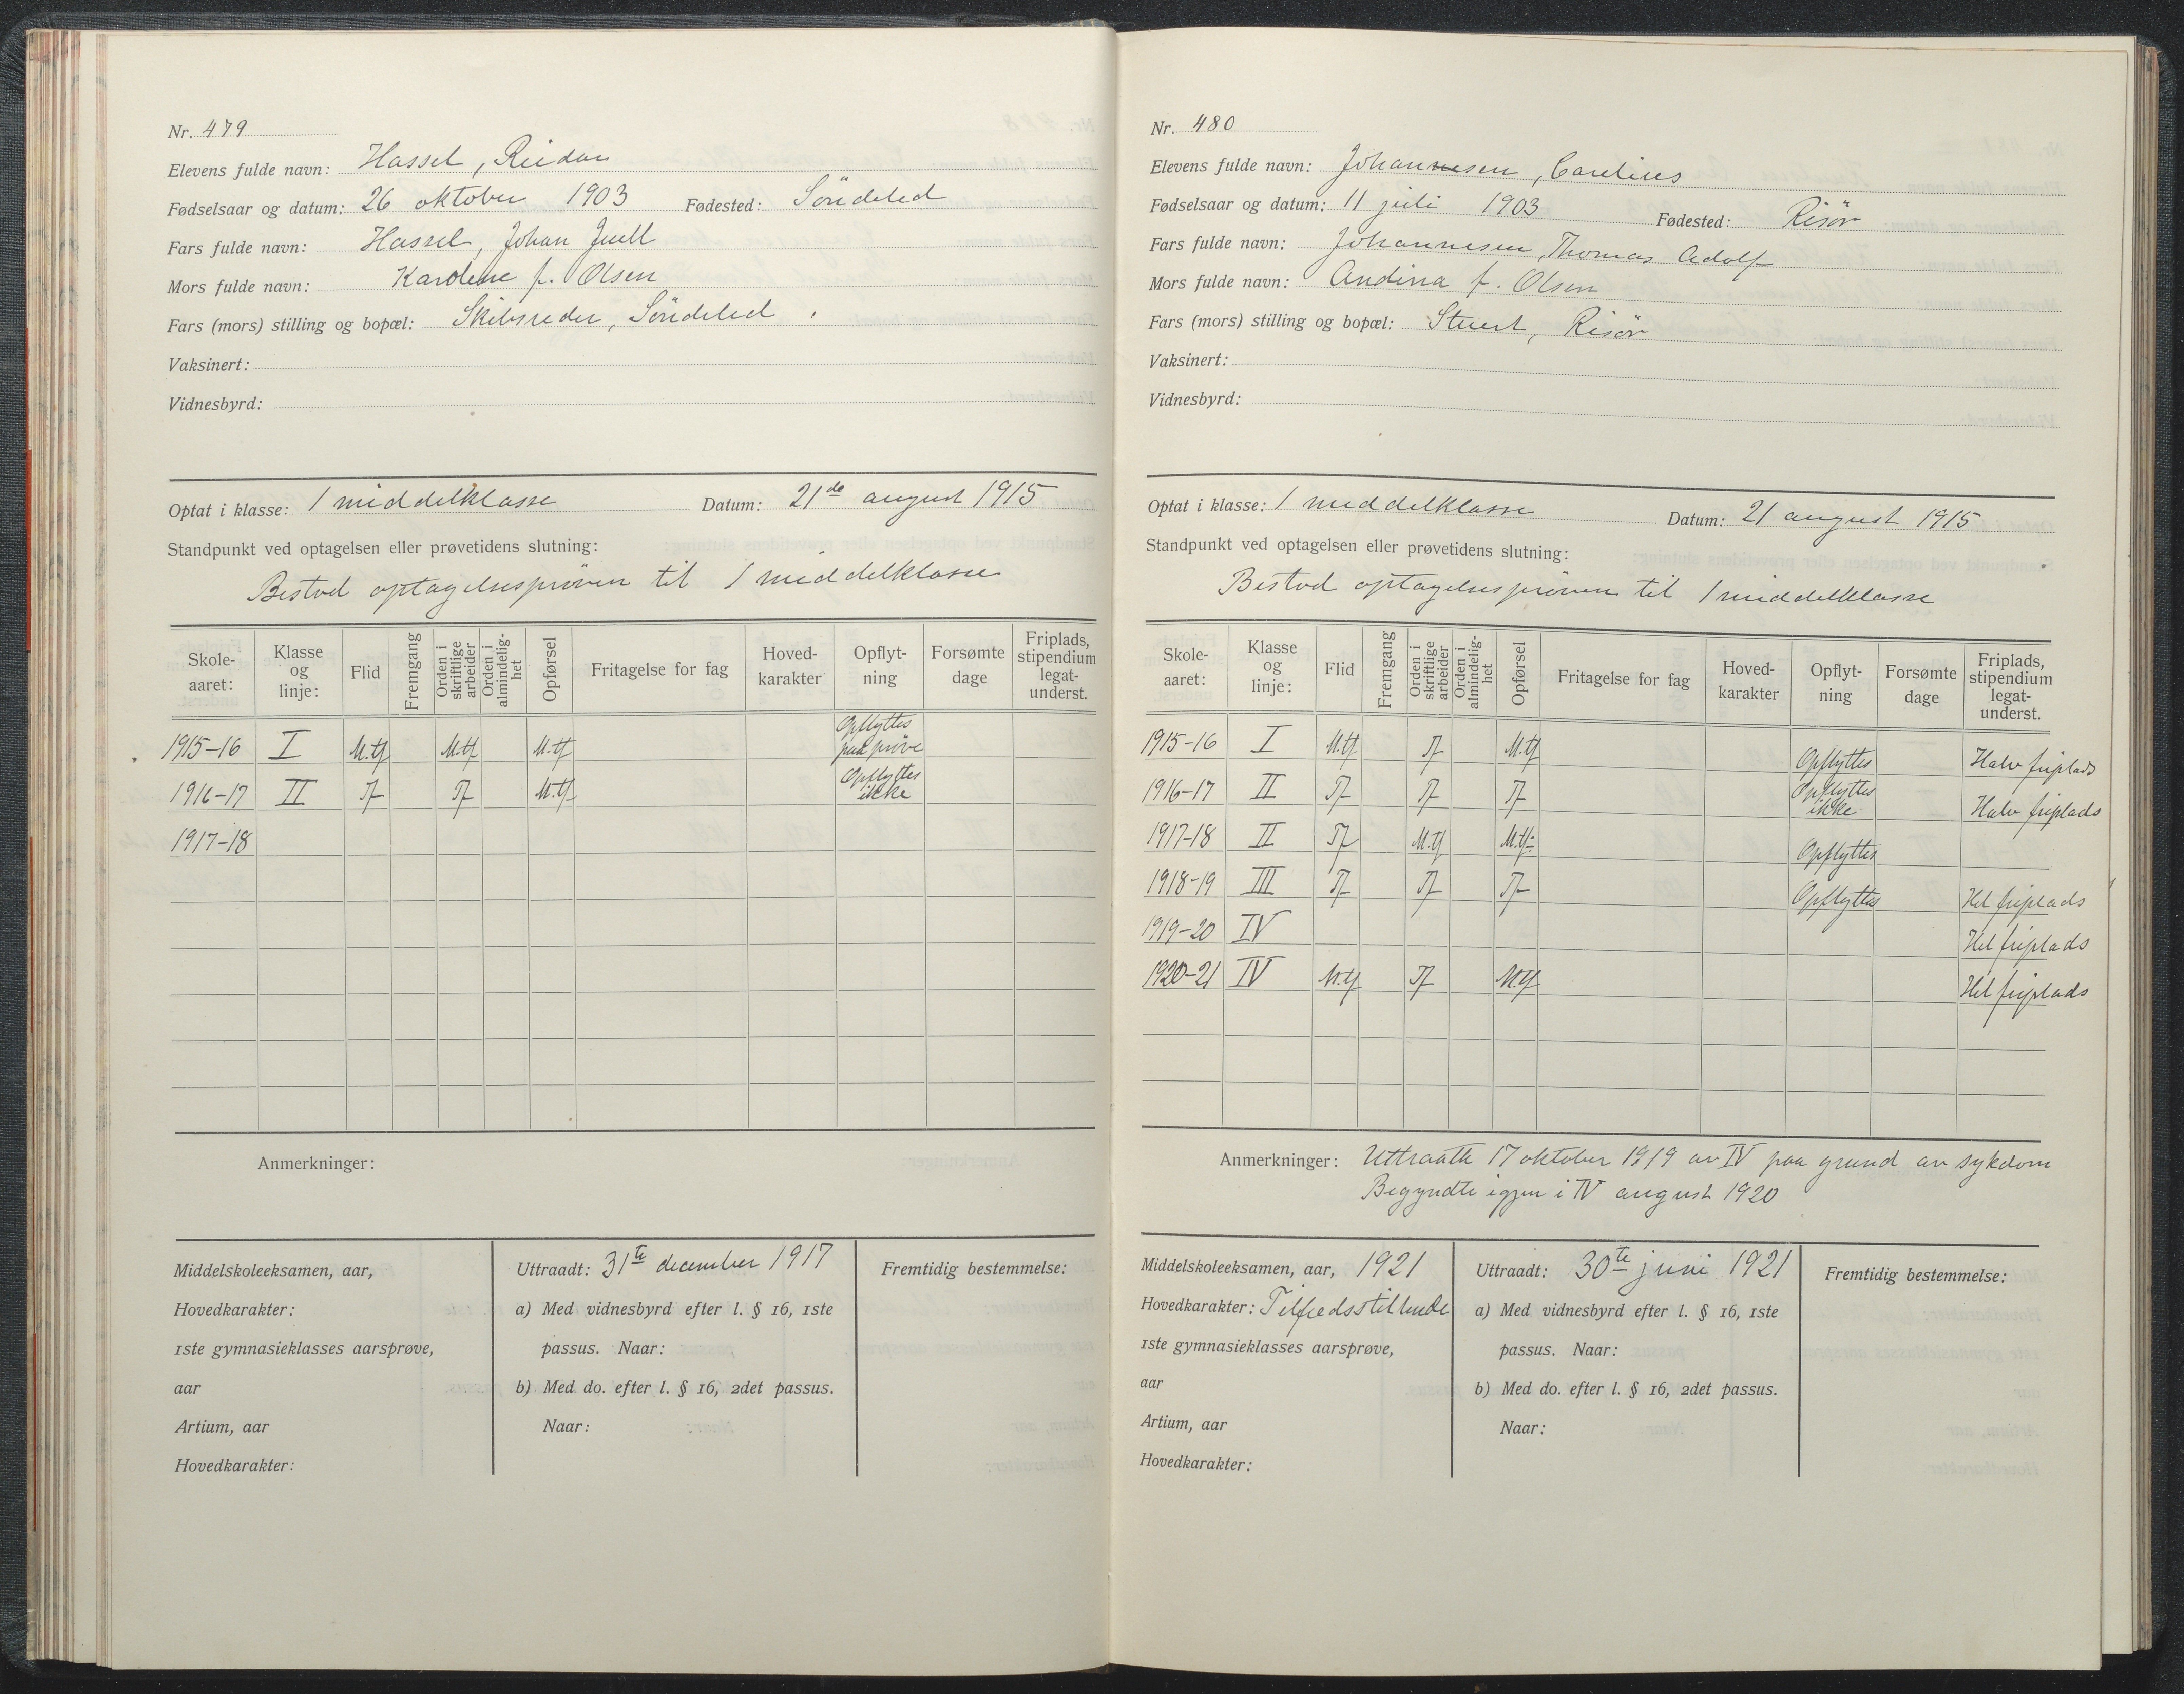 Nr. 479
Elevens fulde navn: Hassel, Reidar
Fødselsaar og datum: 26 oktober 1903 Fødested: Söndeled
Fars fulde navn: Hassel, Johan Juell
Mors fulde navn: Karoline f. Olsen
Fars (mors) stilling og bopæl: Skibsreder, Söndeled.
Vaksinert:
Vidnesbyrd:
Optat i klasse: 1 middelklasse Datum: 21de august 1915
Standpunkt ved optagelsen eller prøvetidens slutning:
Bestod optagelsespröven til 1 middelklasse
Skole-aaret: Klasse og linje: Flid Fremgang Orden i skriftlige arbeider Orden i almindelig-het Opførsel Fritagelse for fag Hoved-karakter Opflyt-ning Forsømte dage Friplads, stipendium legat-underst.
1915-16 I M.tf M.tf M.tf Opflyttes paa pröve
1916-17 II Tf Tf M.tf Opflyttes ikke
1917-18
Anmerkninger:
Middelskoleeksamen, aar,
Hovedkarakter:
1ste gymnasieklasses aarsprøve,
aar
Artium, aar
Hovedkarakter:
Uttraadt: 31te december 1917
a) Med vidnesbyrd efter l. § 16, 1ste
passus. Naar:
b) Med do. efter l. § 16, 2det passus.
Naar:
Fremtidig bestemmelse:
Nr. 480
Elevens fulde navn: Johannesen, Carelius
Fødselsaar og datum: 11 juli 1903 Fødested: Risör
Fars fulde navn: Johannesen, Thomas Adolf
Mors fulde navn: Andina f. Olsen
Fars (mors) stilling og bopæl: Stuert, Risör
Vaksinert:
Vidnesbyrd:
Optat i klasse: 1 middelklasse Datum: 21 august 1915
Standpunkt ved optagelsen eller prøvetidens slutning:
Bestod optagelsespröven til 1 middelklasse
Skole-aaret: Klasse og linje: Flid Fremgang Orden i skriftlige arbeider Orden i almindelig-het Opførsel Fritagelse for fag Hoved-karakter Opflyt-ning Forsømte dage Friplads, stipendium legat-underst.
1915-16 I M.tf Tf M.tf Opflyttes Halv friplads
1916-17 II Tf Tf Tf Opflyttes ikke Halv friplads
1917-18 II Tf M.tf M.tf Opflyttes
1918-19 III Tf Tf Tf Opflyttes Hel friplads
1919-20 IV Hel friplads
1920-21 IV M.tf Tf M.tf Hel friplads
Anmerkninger: Uttraadte 17 oktober 1919 av IV paa grund av sykdom
Begyndte igjen i IV august 1920
Middelskoleeksamen, aar, 1921
Hovedkarakter: Tilfredsstillende
1ste gymnasieklasses aarsprøve,
aar
Artium, aar
Hovedkarakter:
Uttraadt: 30te juni 1921
a) Med vidnesbyrd efter l. § 16, 1ste
passus. Naar:
b) Med do. efter l. § 16, 2det passus.
Naar:
Fremtidig bestemmelse: